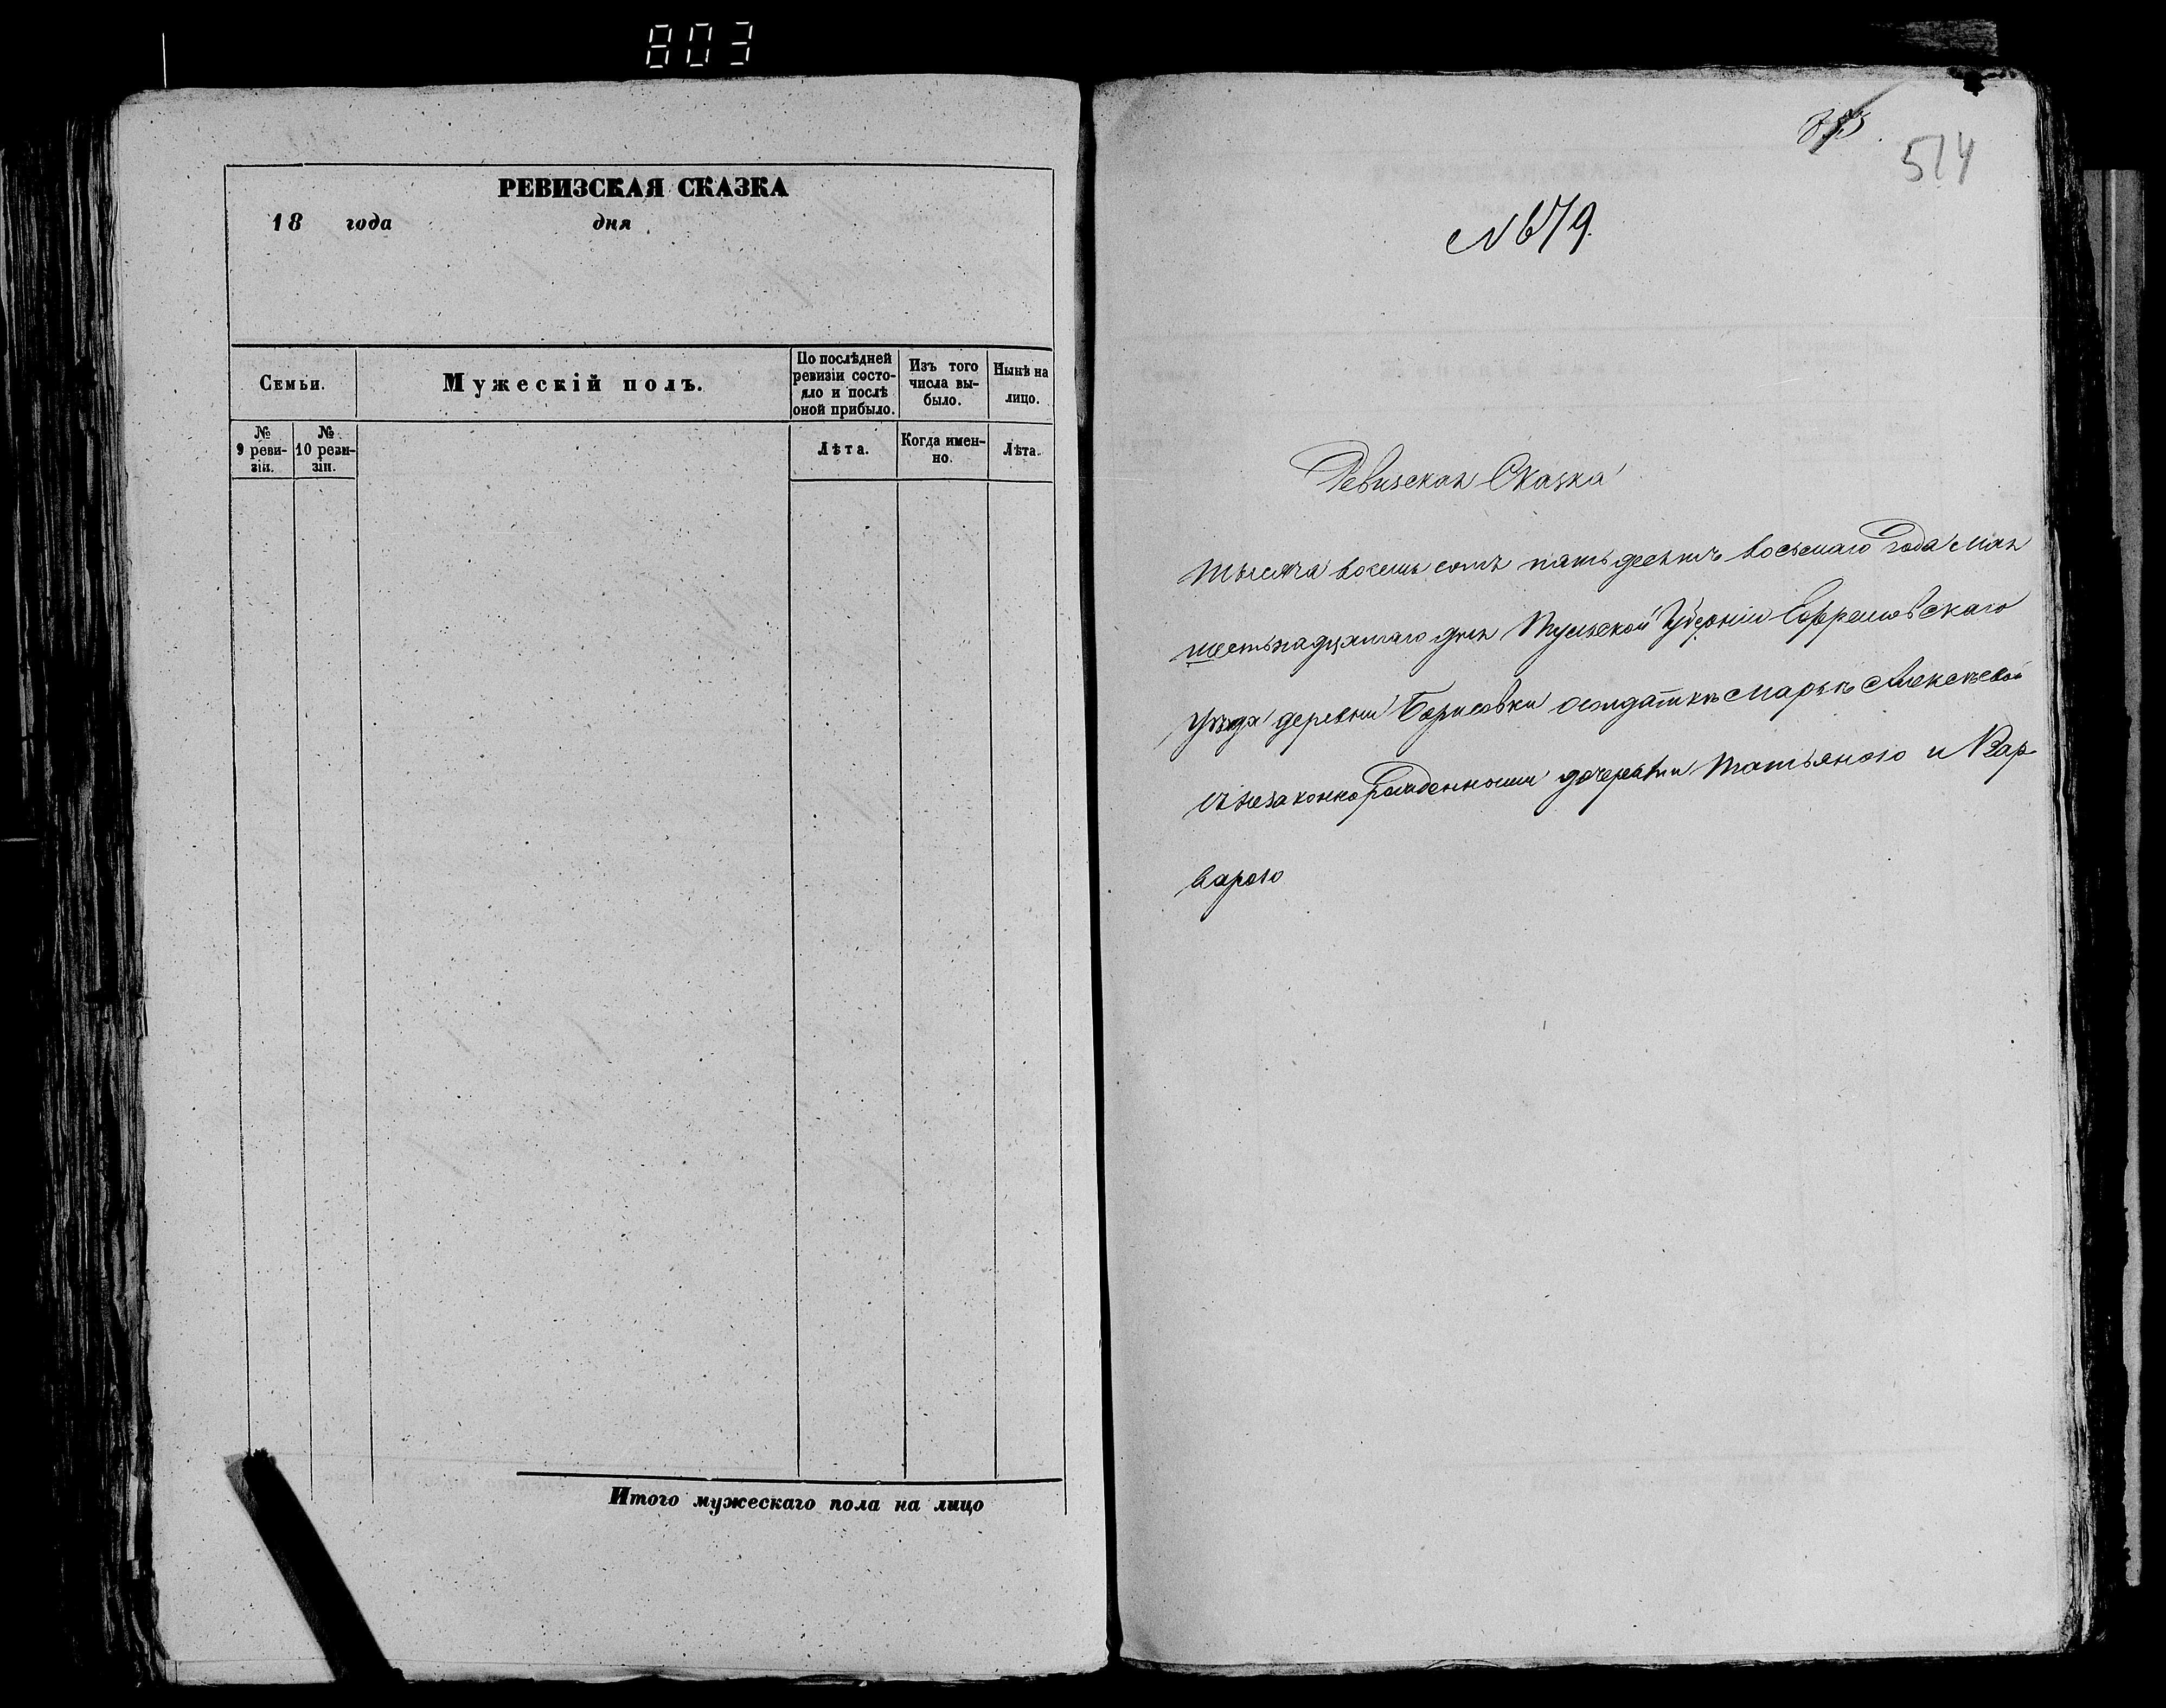 803
РЕВИЗСКАЯ СКАЗКА
18 года дня
Семьи.
Мужескій полъ.
По послѣдней
ревизіи состо-
яло и послѣ
оной прибыло.
Изъ того
числа вы-
было.
Нынѣ на
лицо.
№
9 реви-
зіи.
№
10 реви-
зіи.
Лѣта.
Когда имен-
но.
Лѣта.
Итого мужескаго пола на лицо
514
№ 679.
Ревизская Сказка
тысяча восемь сотъ пятьдесятъ восьмаго года мая
шестьнадцятаго дня Тульской Губерніи Ефремовскаго
уѣзда деревни Борисовки о солдаткѣ Марьѣ Алексѣевой
съ незаконнорожденными дочерьми Татьяною и Вар
варою